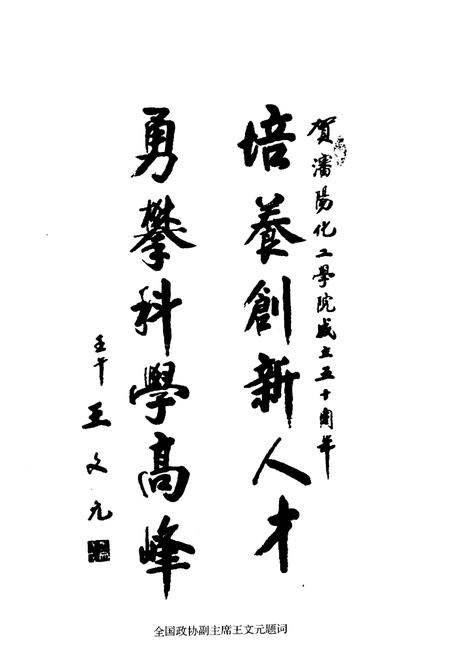 贺瀋陽化工學院成立五十周年
培養創新人才
勇攀科學高峰
壬午
王文元
全国政协副主席王文元题词